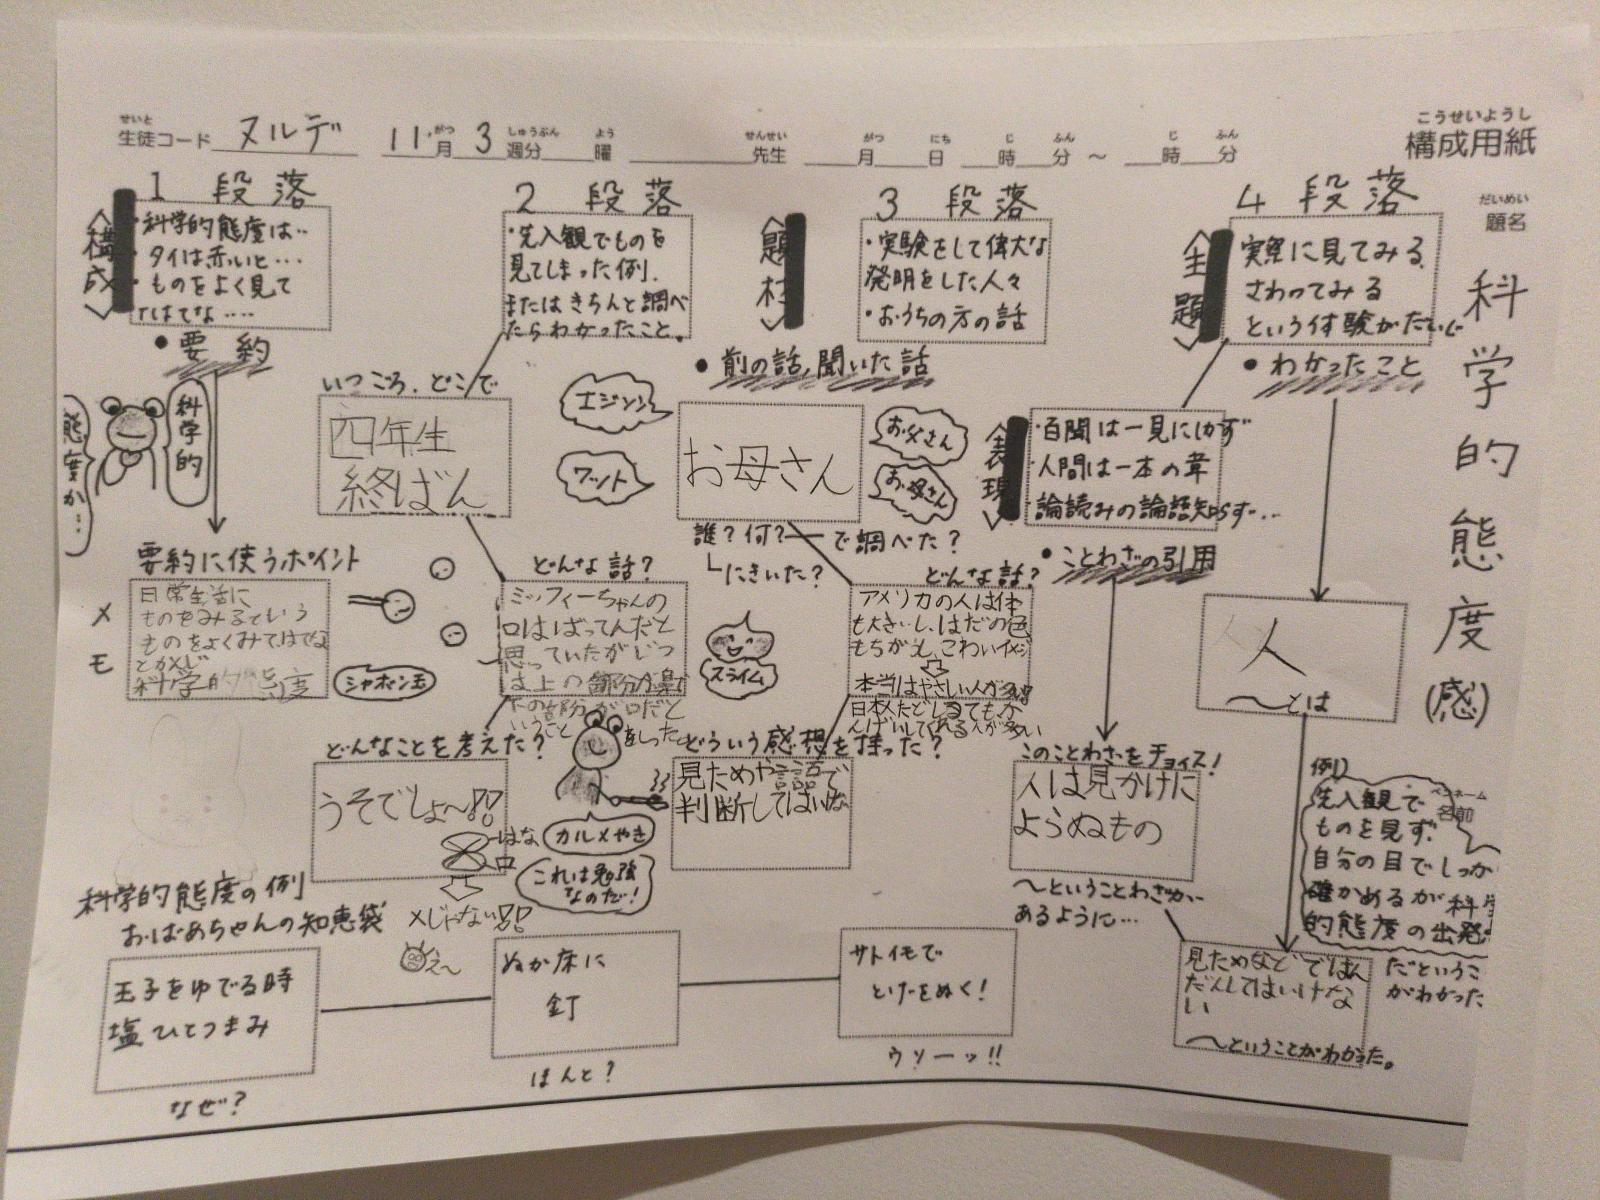 こうせいようし
構成用紙
せいと
生徒コード ヌルデ
がつ しゅうぶん よう
11月 3週分 曜
せんせい
先生
がつ にち じ ふん じ ふん
月 日 時 分 ～ 時 分
だいめい
題名
科学的態度(感)
1 段落
構成
・科学的態度は‥
・タイは赤いと…
・ものをよく見て
・要約
科学的
態度か…
要約に使うポイント
メモ
日常生活に
ものをみるていう
ものをよくみてはでな
科学的態度
2 段落
・先入観でものを
見てしまった例.
またはきちんと調べ
たらわかったこと。
いつごろ、どこで
四年生
終ばん
どんな話?
ミッフィーちゃんの
口はばってんだと
思っていたがじつ
は上の部分が鼻で
下の部分が口だと
いうこと
どんなことを考えた?
うそでしょ～!!
はな
口
メじゃない!!
え～
シャボン玉
題材
3 段落
・実験をして偉大な
発明をした人々
・おうちの方の話
・前の話,聞いた話
エジソン
ワット
お母さん
お父さん
お母さん
誰?何?ーで調べた?
にきいた?
どんな話?
アメリカの人は体
も大きいし、はだの色
もちがうし、こわい
本当はやさしい人が多い
スライム
どういう感想を持った?
見ためや言語で
判断してはいけない
カルメやき
これは勉強
なのだ!
主題
4 段落
実際に見てみる、
さわってみる
という体験が
・わかったこと
表現
・百聞は一見にしかず
・人間は一本の葦
・論語読みの論語知らず…
・ことわざの引用
人
～とは
このことわざをチョイス!
人は見かけに
よらぬもの
～ということわざが‥
あるように…
例)
先入観で
ものを見ず.
自分の目でしっか
確かめるが科学
的態度の出発
ペンネーム
名前
見ためなどではん
だんしてはいけな
い
～ということがわかった。
だというこ
がわかった
科学的態度の例
おばあちゃんの知恵袋
玉子をゆでる時
塩ひとつまみ
なぜ?
ぬか床に
釘
ほんと?
サトイモで
とげをぬく!
ウソーッ!!